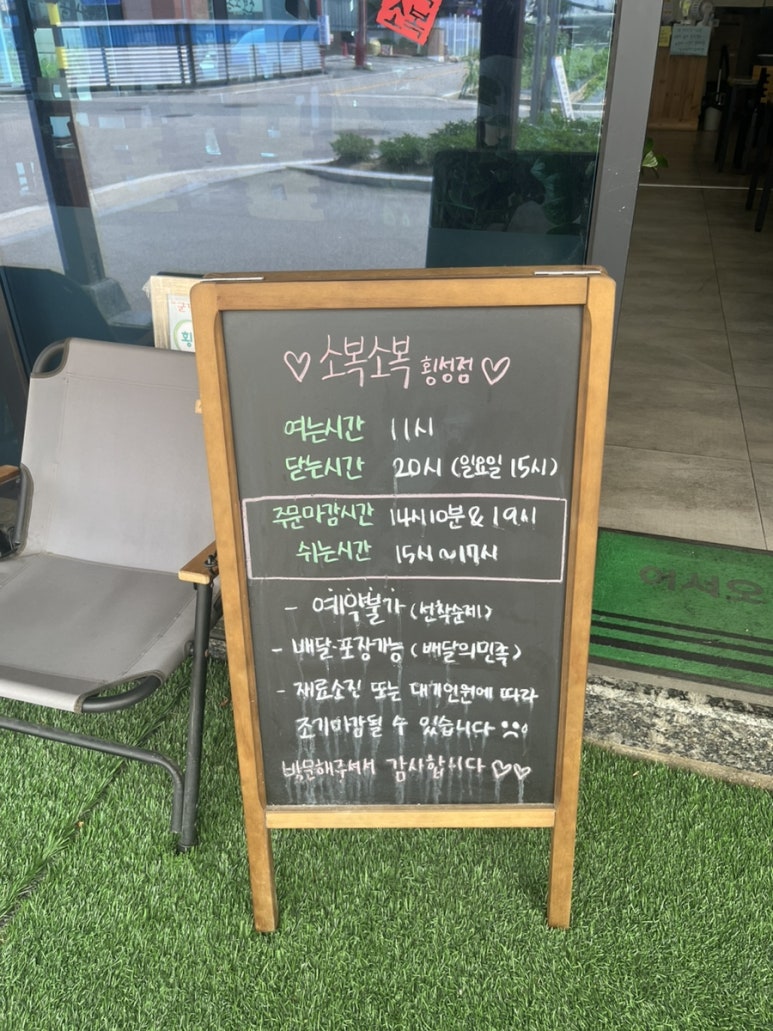 소복소복 횡성점
여는시간 11시
닫는시간 20시 (일요일 15시)
주문마감시간 14시10분 & 19시
쉬는시간 15시~17시
- 예약불가 (선착순제)
- 배달·포장가능 (배달의민족)
- 재료소진 또는 대기인원에 따라
조기마감될 수 있습니다
방문해주셔서 감사합니다
어서오
횡